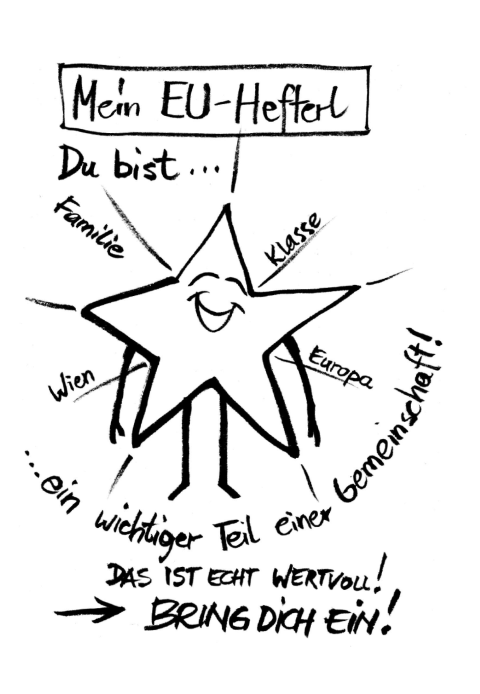 Mein EU-Hefterl
Du bist...
Familie
Klasse
Wien
Europa
...ein wichtiger Teil einer Gemeinschaft!
DAS IST ECHT WERTVOLL!
→ BRING DICH EIN!